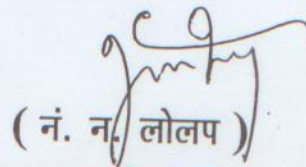 ( नं. न. लोलप )